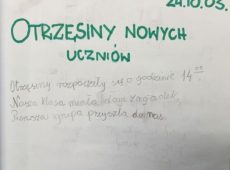 24.10.03.
OTRZĘSINY NOWYCH
UCZNIÓW
Otrzęsiny rozpoczęły się o godzinie 14⁰⁰.
Nasza klasa miała
Pierwsza grupa przyszła do nas.